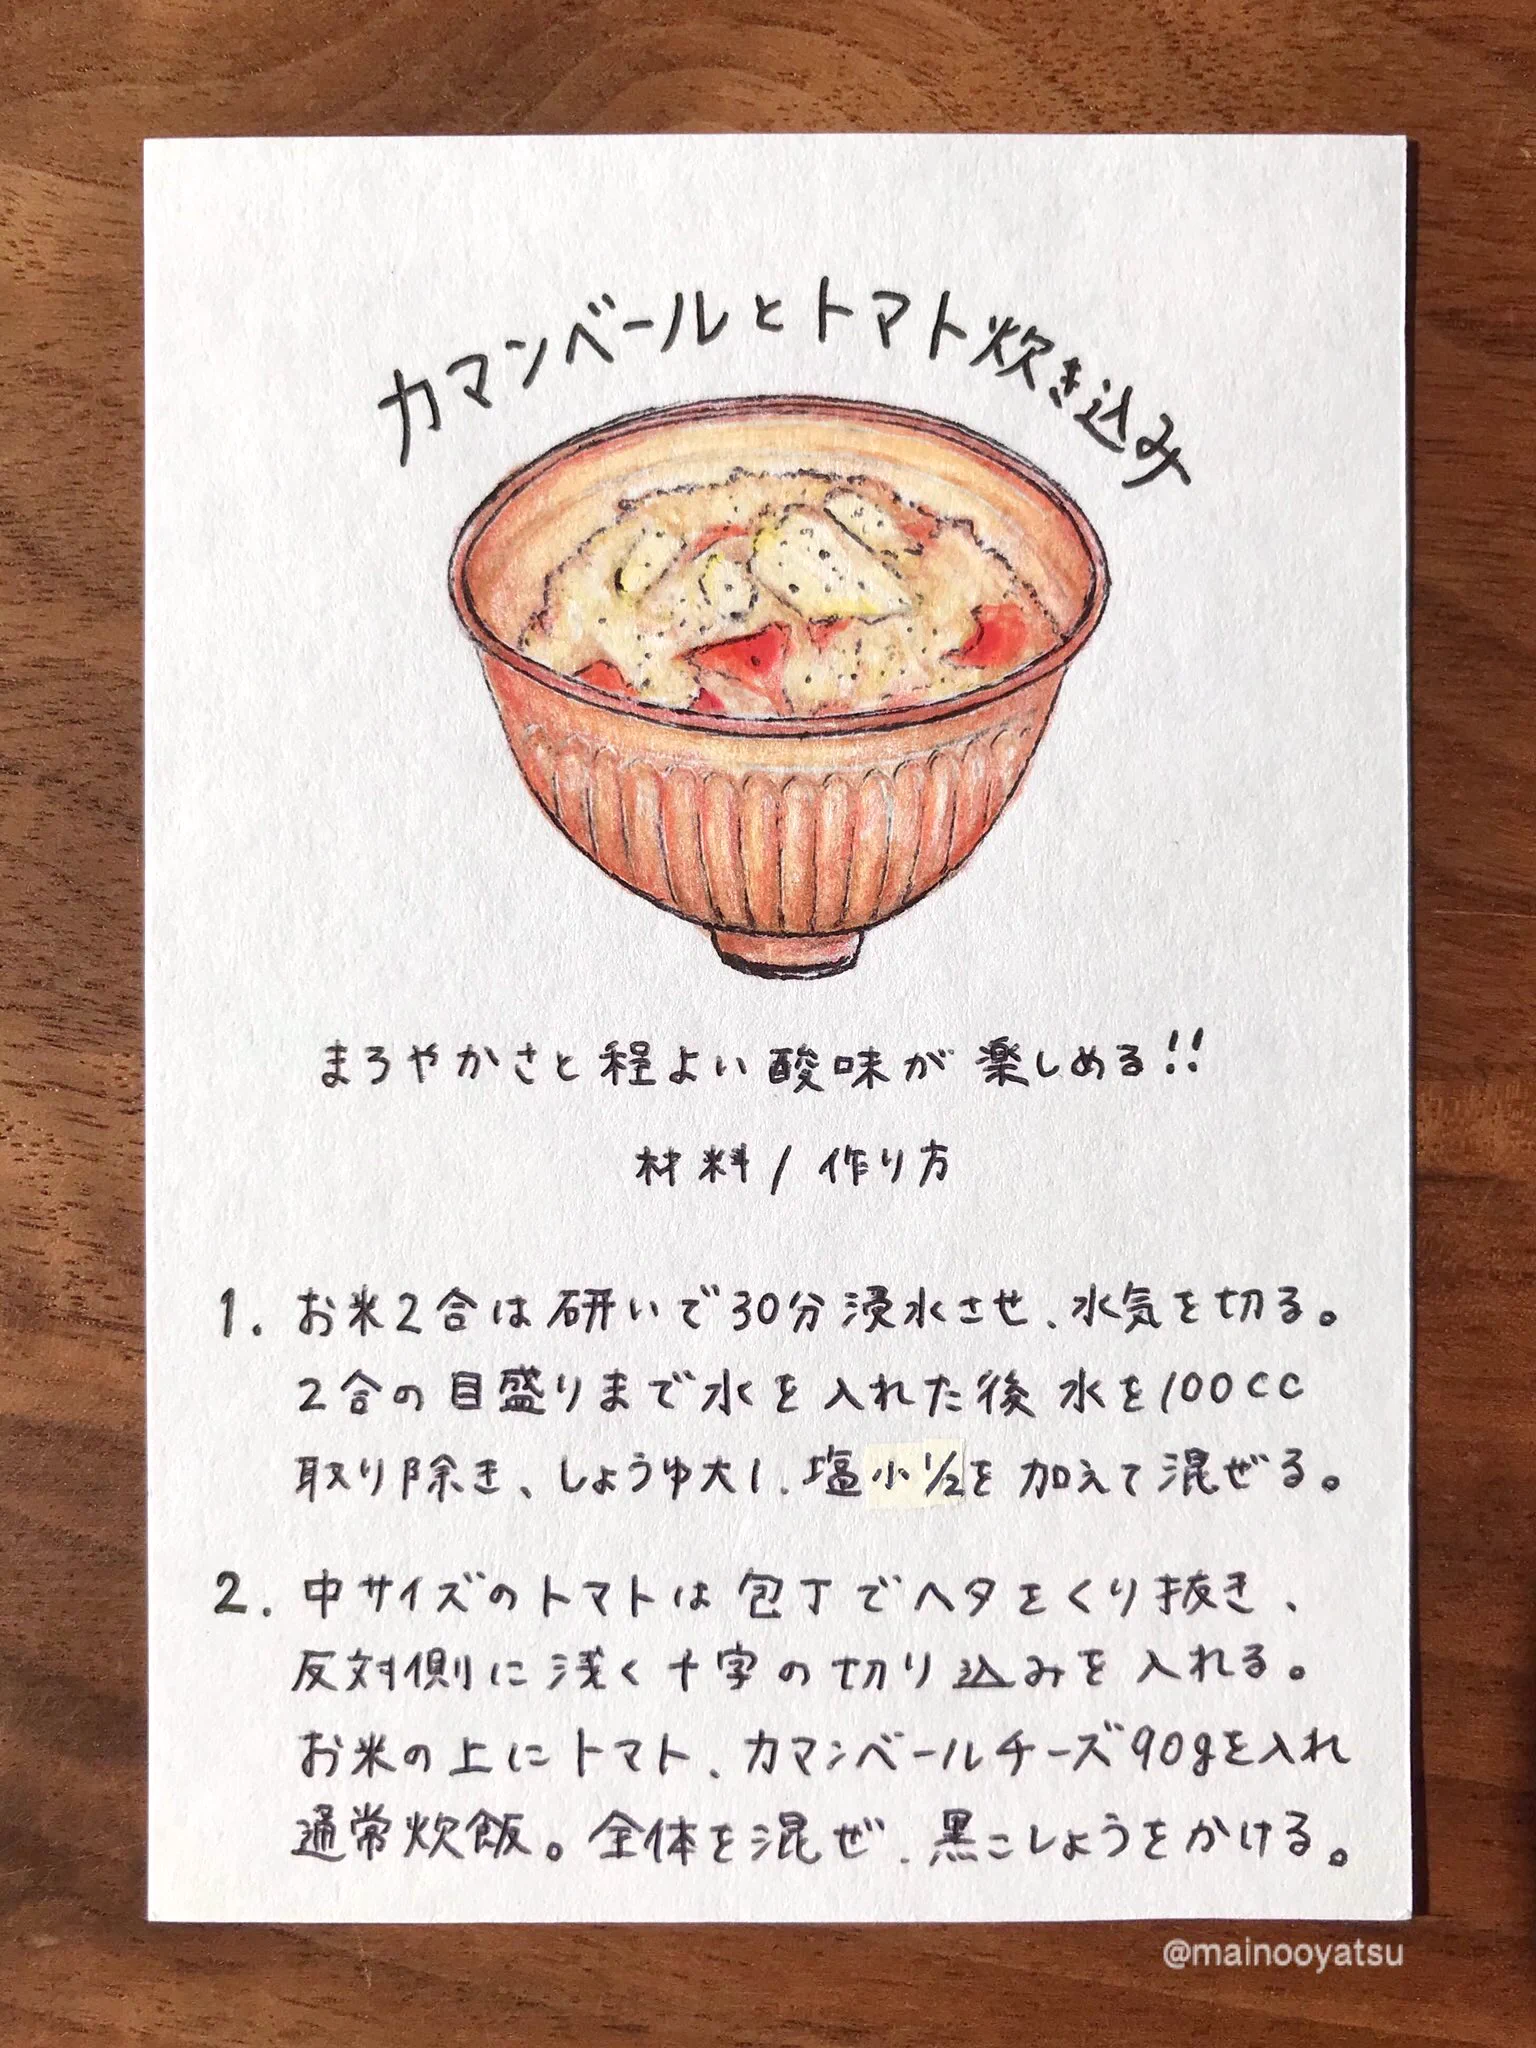 カマンベールとトマト炊き込み
まろやかさと程よい酸味が楽しめる!!
材料/作り方
1. お米2合は研いで30分浸水させ、水気を切る。
2合の目盛りまで水を入れた後水を100cc
取り除き、しょうゆ大1、塩小1/2を加えて混ぜる。
2. 中サイズのトマトは包丁でヘタをくり抜き、
反対側に浅く十字の切り込みを入れる。
お米の上にトマト、カマンベールチーズ90gを入れ
通常炊飯。全体を混ぜ、黒こしょうをかける。
@mainooyatsu